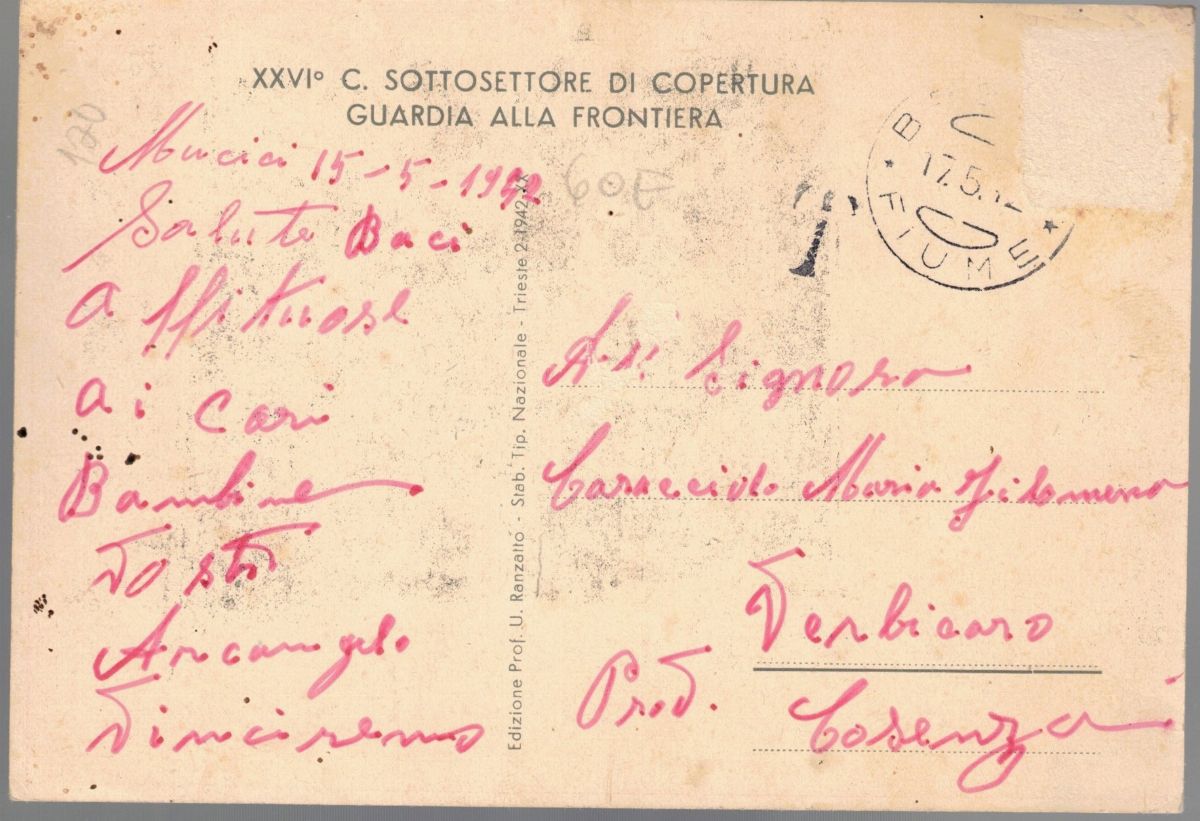 XXVI° C. SOTTOSETTORE DI COPERTURA
GUARDIA ALLA FRONTIERA
120
Mucici 15-5-1942
60E
Salute Baci
Affituose
ai cari
Bambine
Vostro
Arcangelo
Vinciremo
Edizione Prof. U. Ranzatto - Stab. Tip. Nazionale - Trieste 2-1942-XX
T
17.5.42
FIUME
Signora
Caracciolo Maria Filomena
Verbicaro
Prov. Cosenza